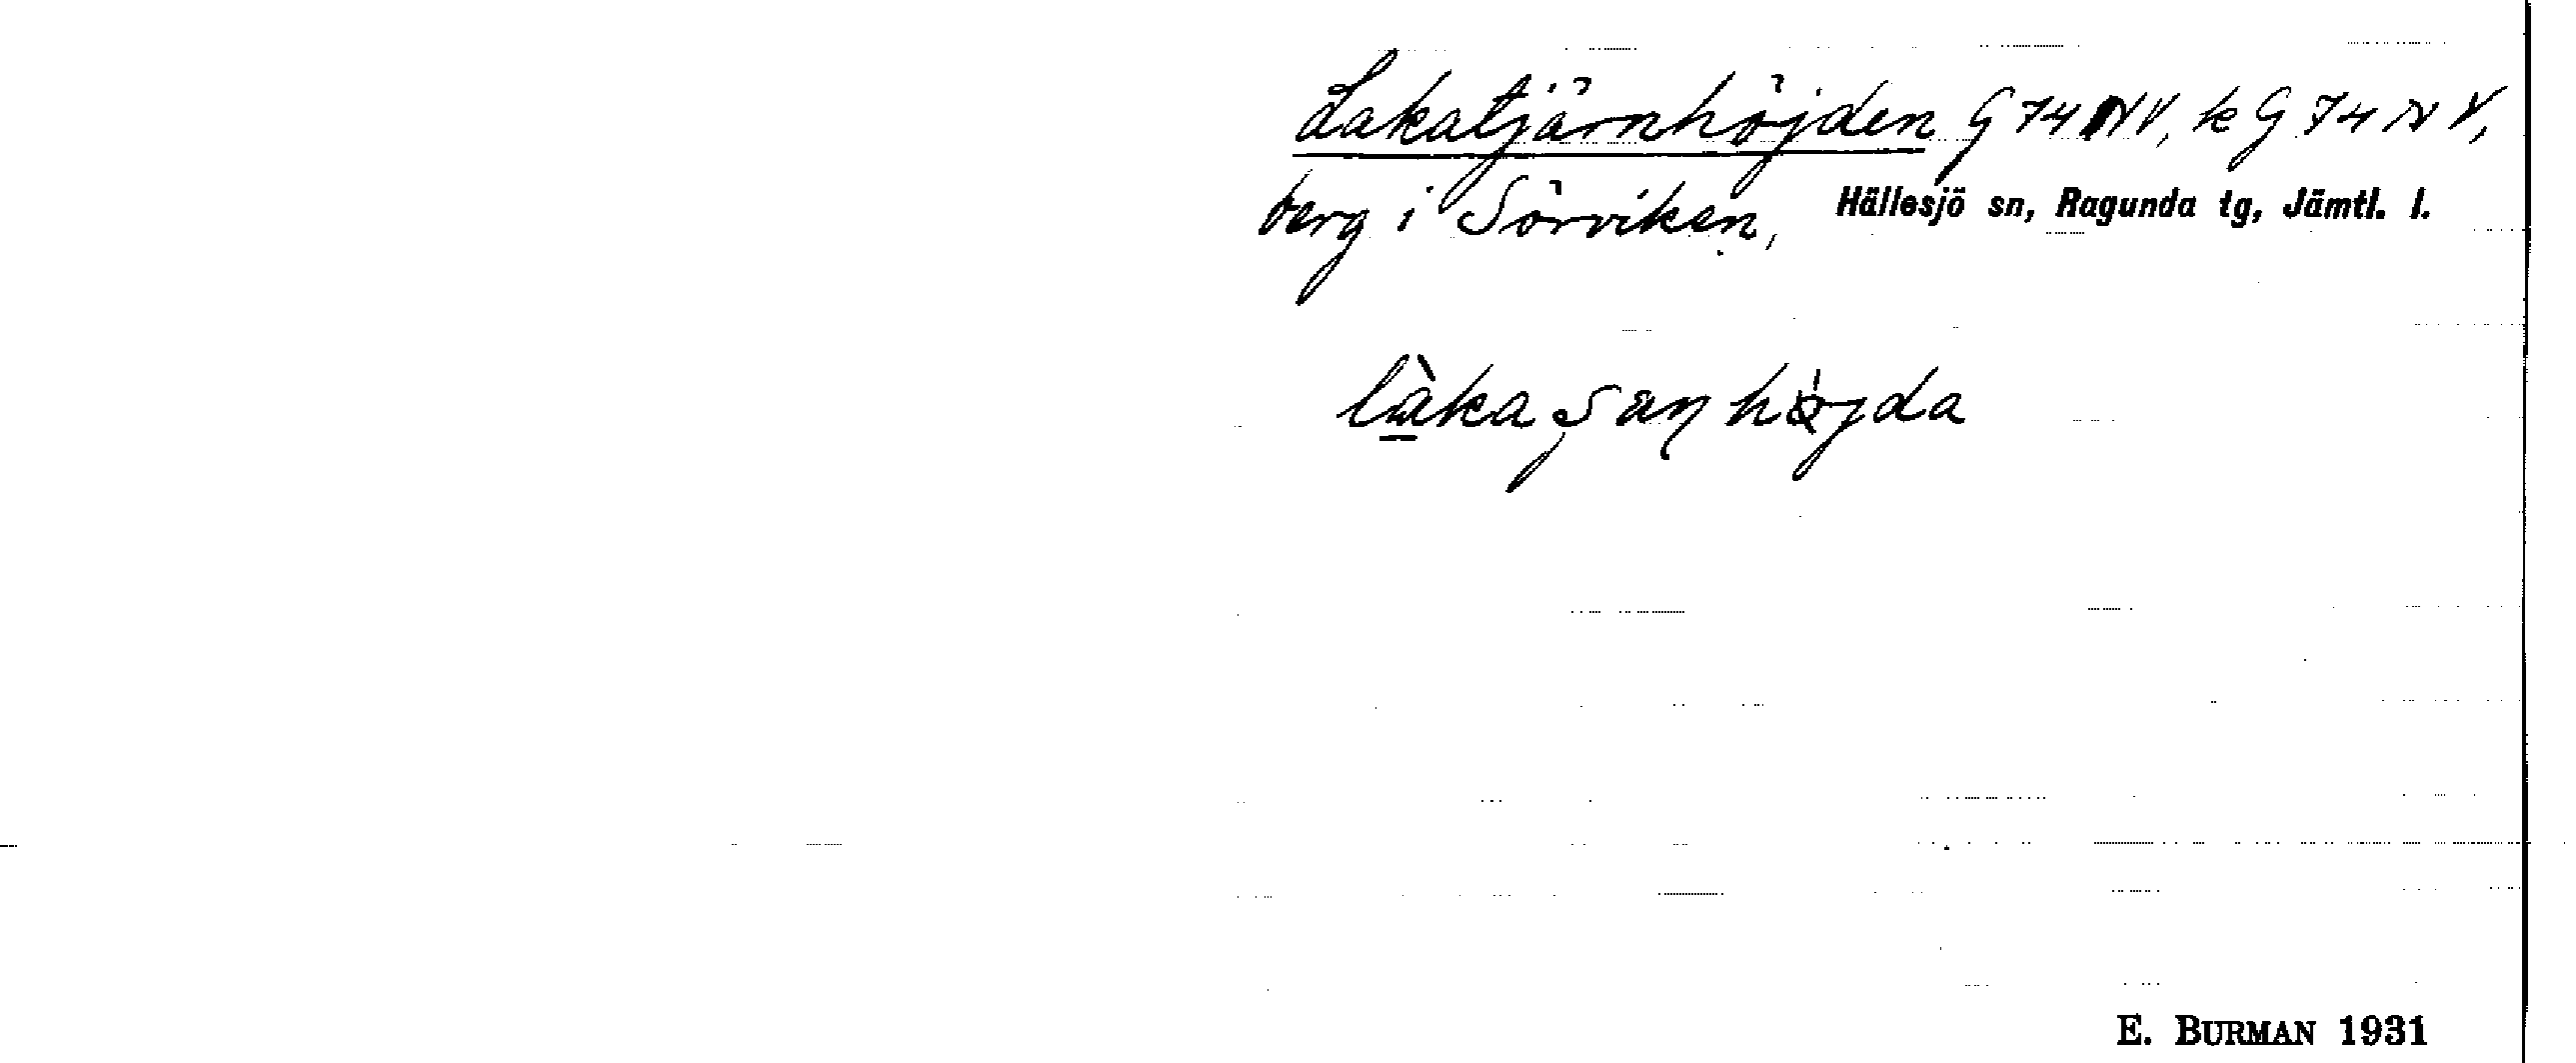 Lakatjärnhöjden G 74 NV, k G 74 NV,
berg i Sörviken, Hällesjö sn, Ragunda tg, Jämtl. l.
E. BURMAN 1931